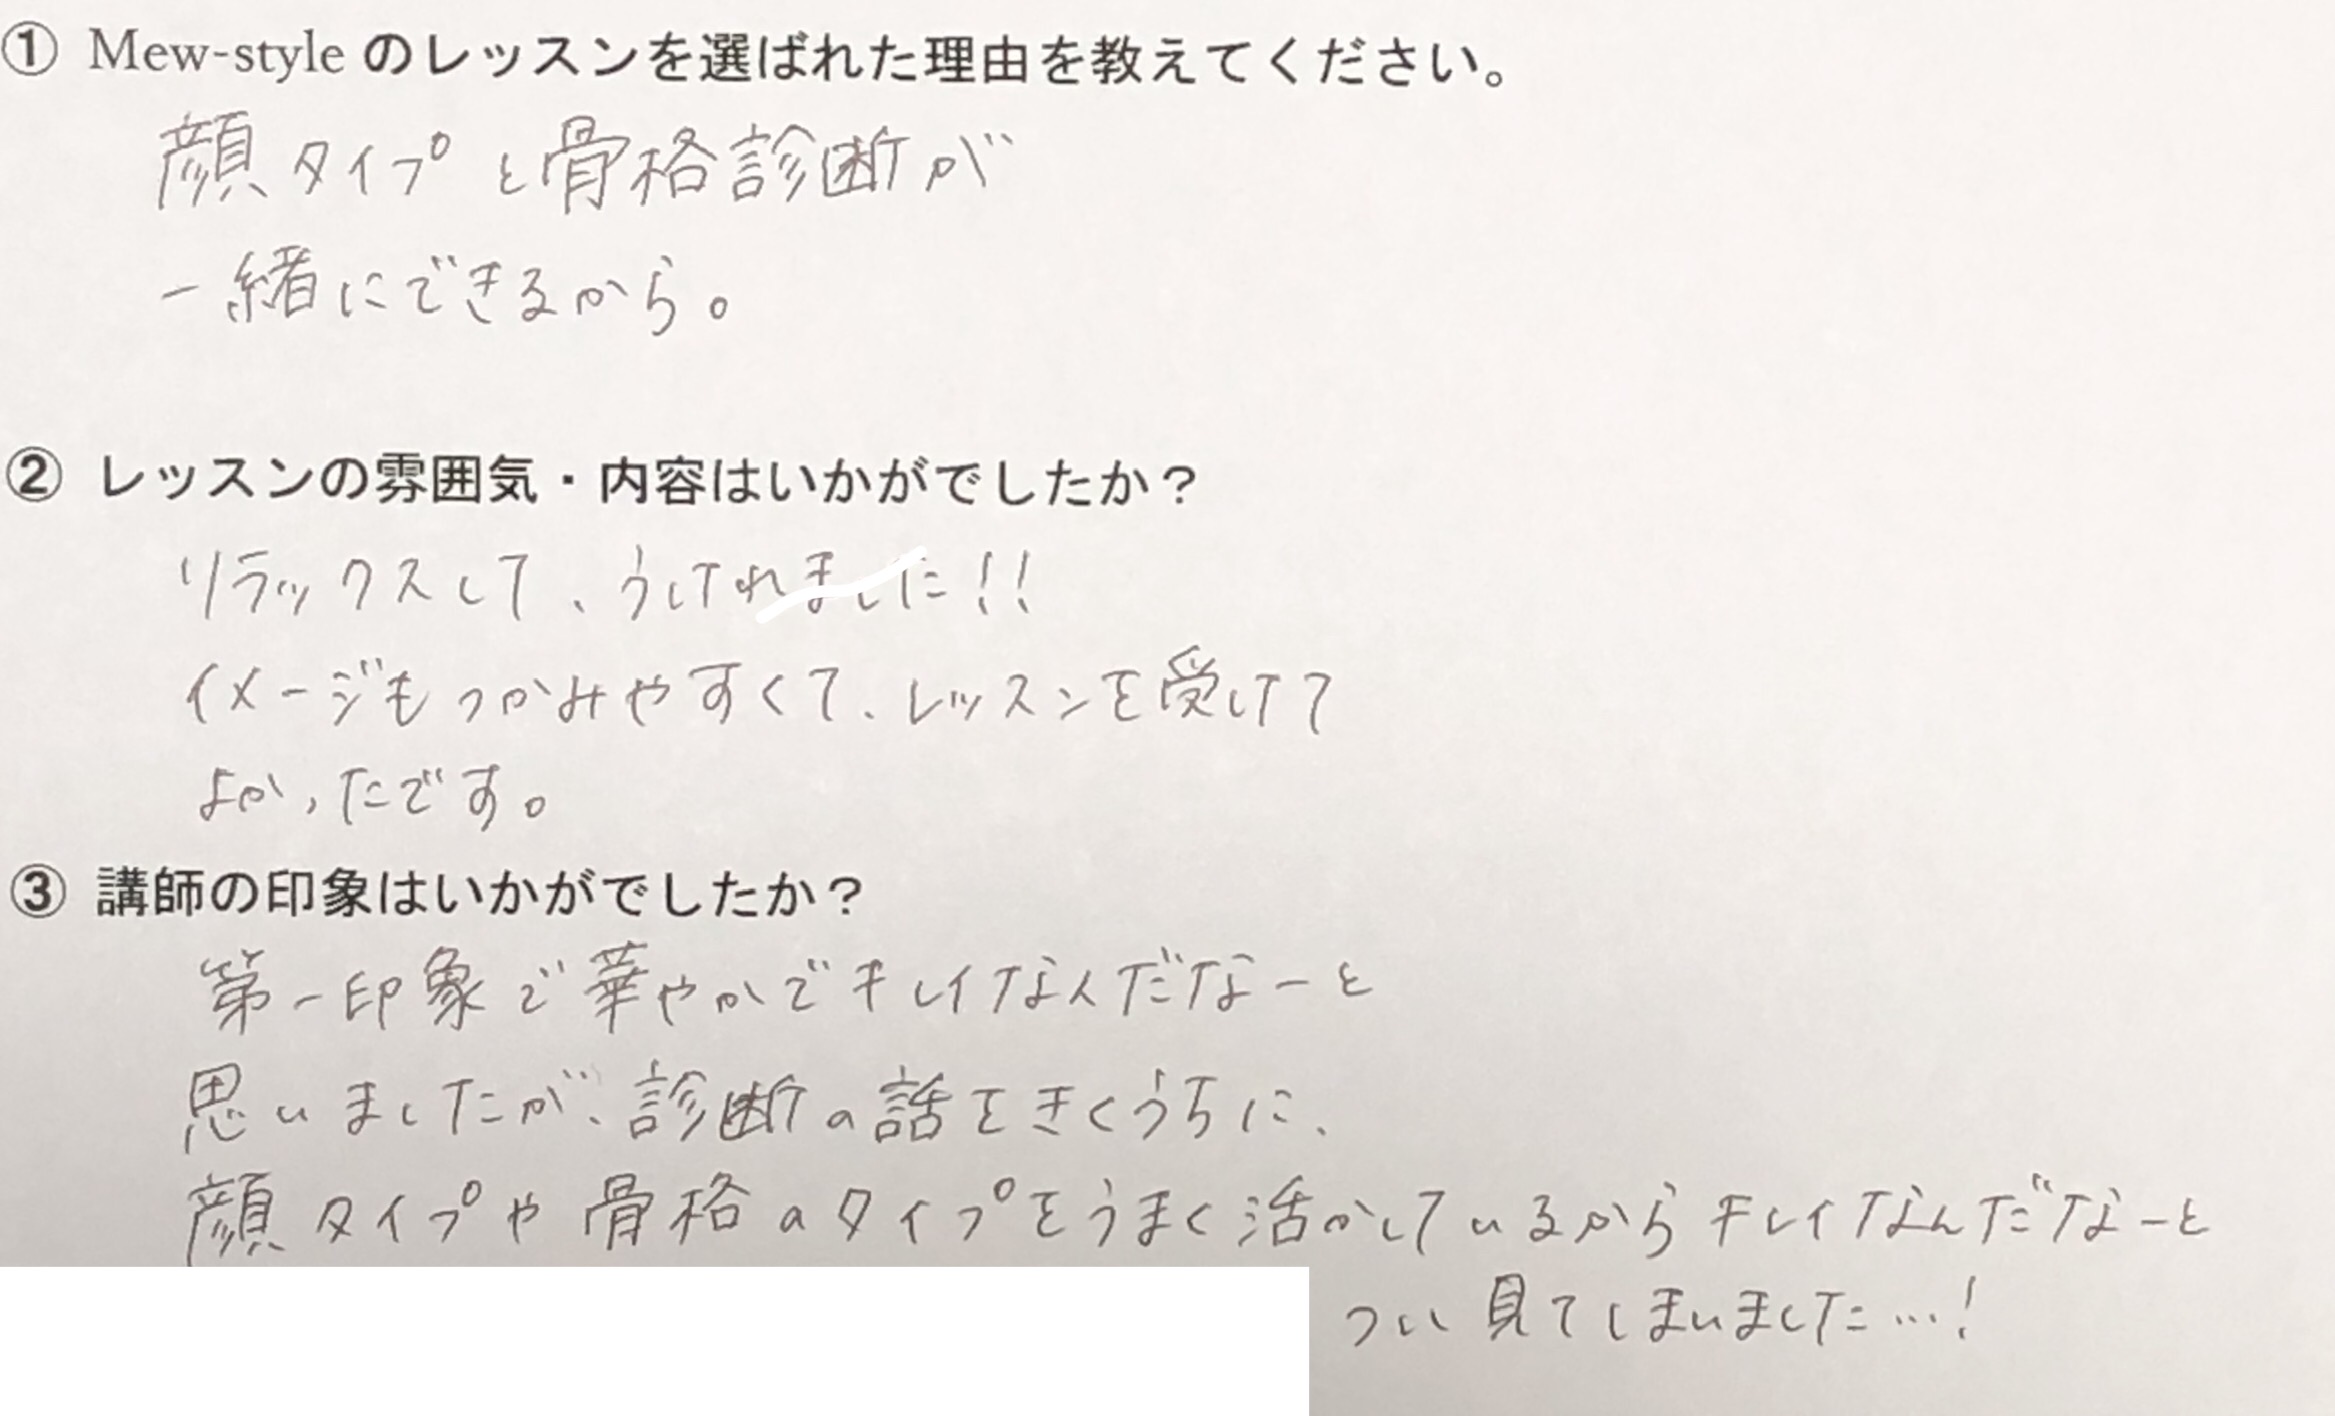 ① Mew-style のレッスンを選ばれた理由を教えてください。
顔タイプと骨格診断が
一緒にできるから。
② レッスンの雰囲気・内容はいかがでしたか？
リラックスして、うけれました!!
イメージもつかみやすくて、レッスンを受けて
よかったです。
③ 講師の印象はいかがでしたか？
第一印象で華やかでキレイなんだなーと
思いましたが、診断の話をきくうちに、
顔タイプや骨格のタイプをうまく活かしているからキレイなんだなーと
つい見てしまいました…!